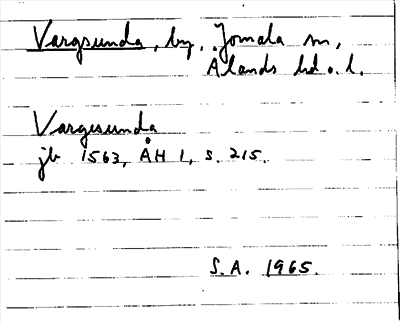 Vargsunda, by, Jomala sn,
Ålands hd o. l.
Vargesunda
jb 1563, ÅH 1, s. 215.
S.A. 1965.